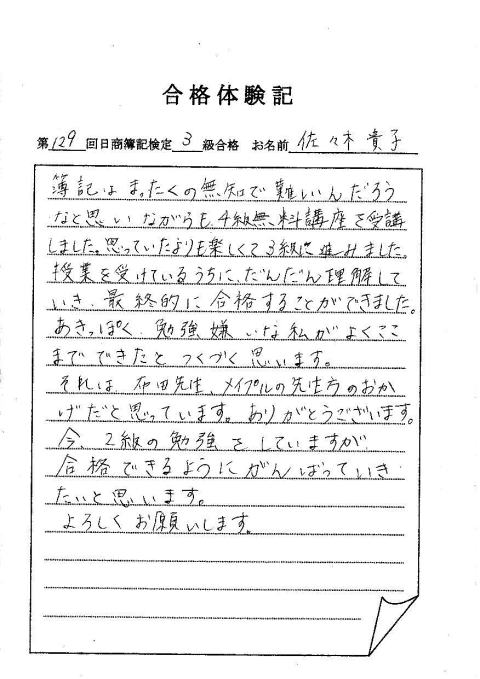 合格体験記
第129回日商簿記検定 3 級合格 お名前 佐々木 貴子
簿記はまったくの無知で難しいんだろう
なと思いながらも4級無料講座を受講
しました。思っていたよりも楽しくて3級に進みました。
授業を受けているうちに、だんだん理解して
いき、最終的に合格することができました。
あきっぽく、勉強嫌いな私がよくここ
までできたとつくづく思います。
それは、布田先生、メイプルの先生方のおか
げだと思っています。ありがとうございます。
今、2級の勉強をしていますが
合格できるようにがんばっていき
たいと思います。
よろしくお願いします。